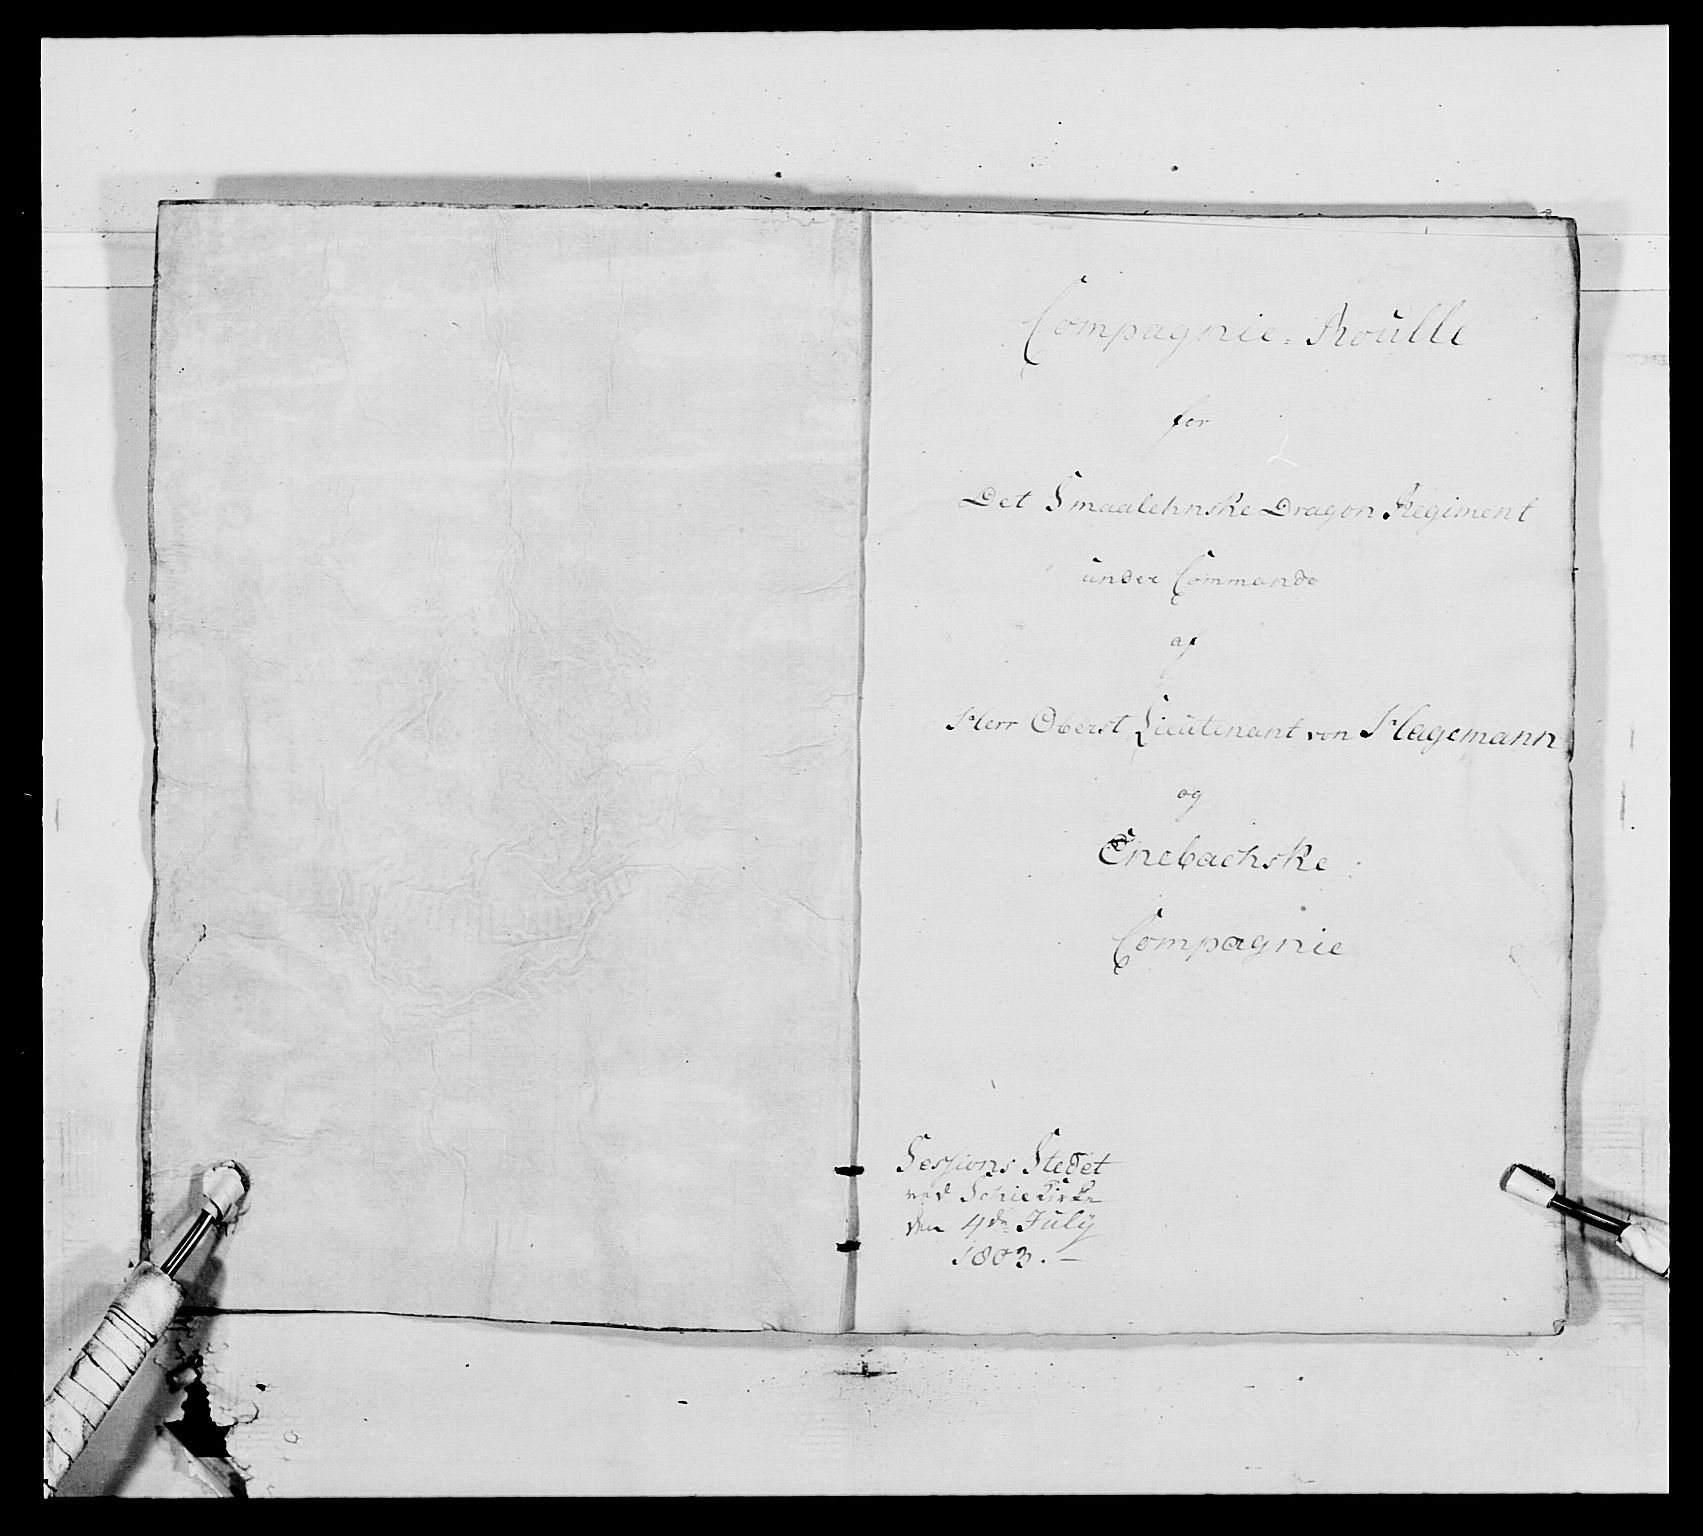 Compagnie-Roulle
for
Det Smaalehnske Dragon Regiment
under Commando
af
Herr Oberst Lieutenant von Hagemann
og
Enebachske
Compagnie
Sessions Stedet
ved Schie Kirke
den 4de July
1803. —